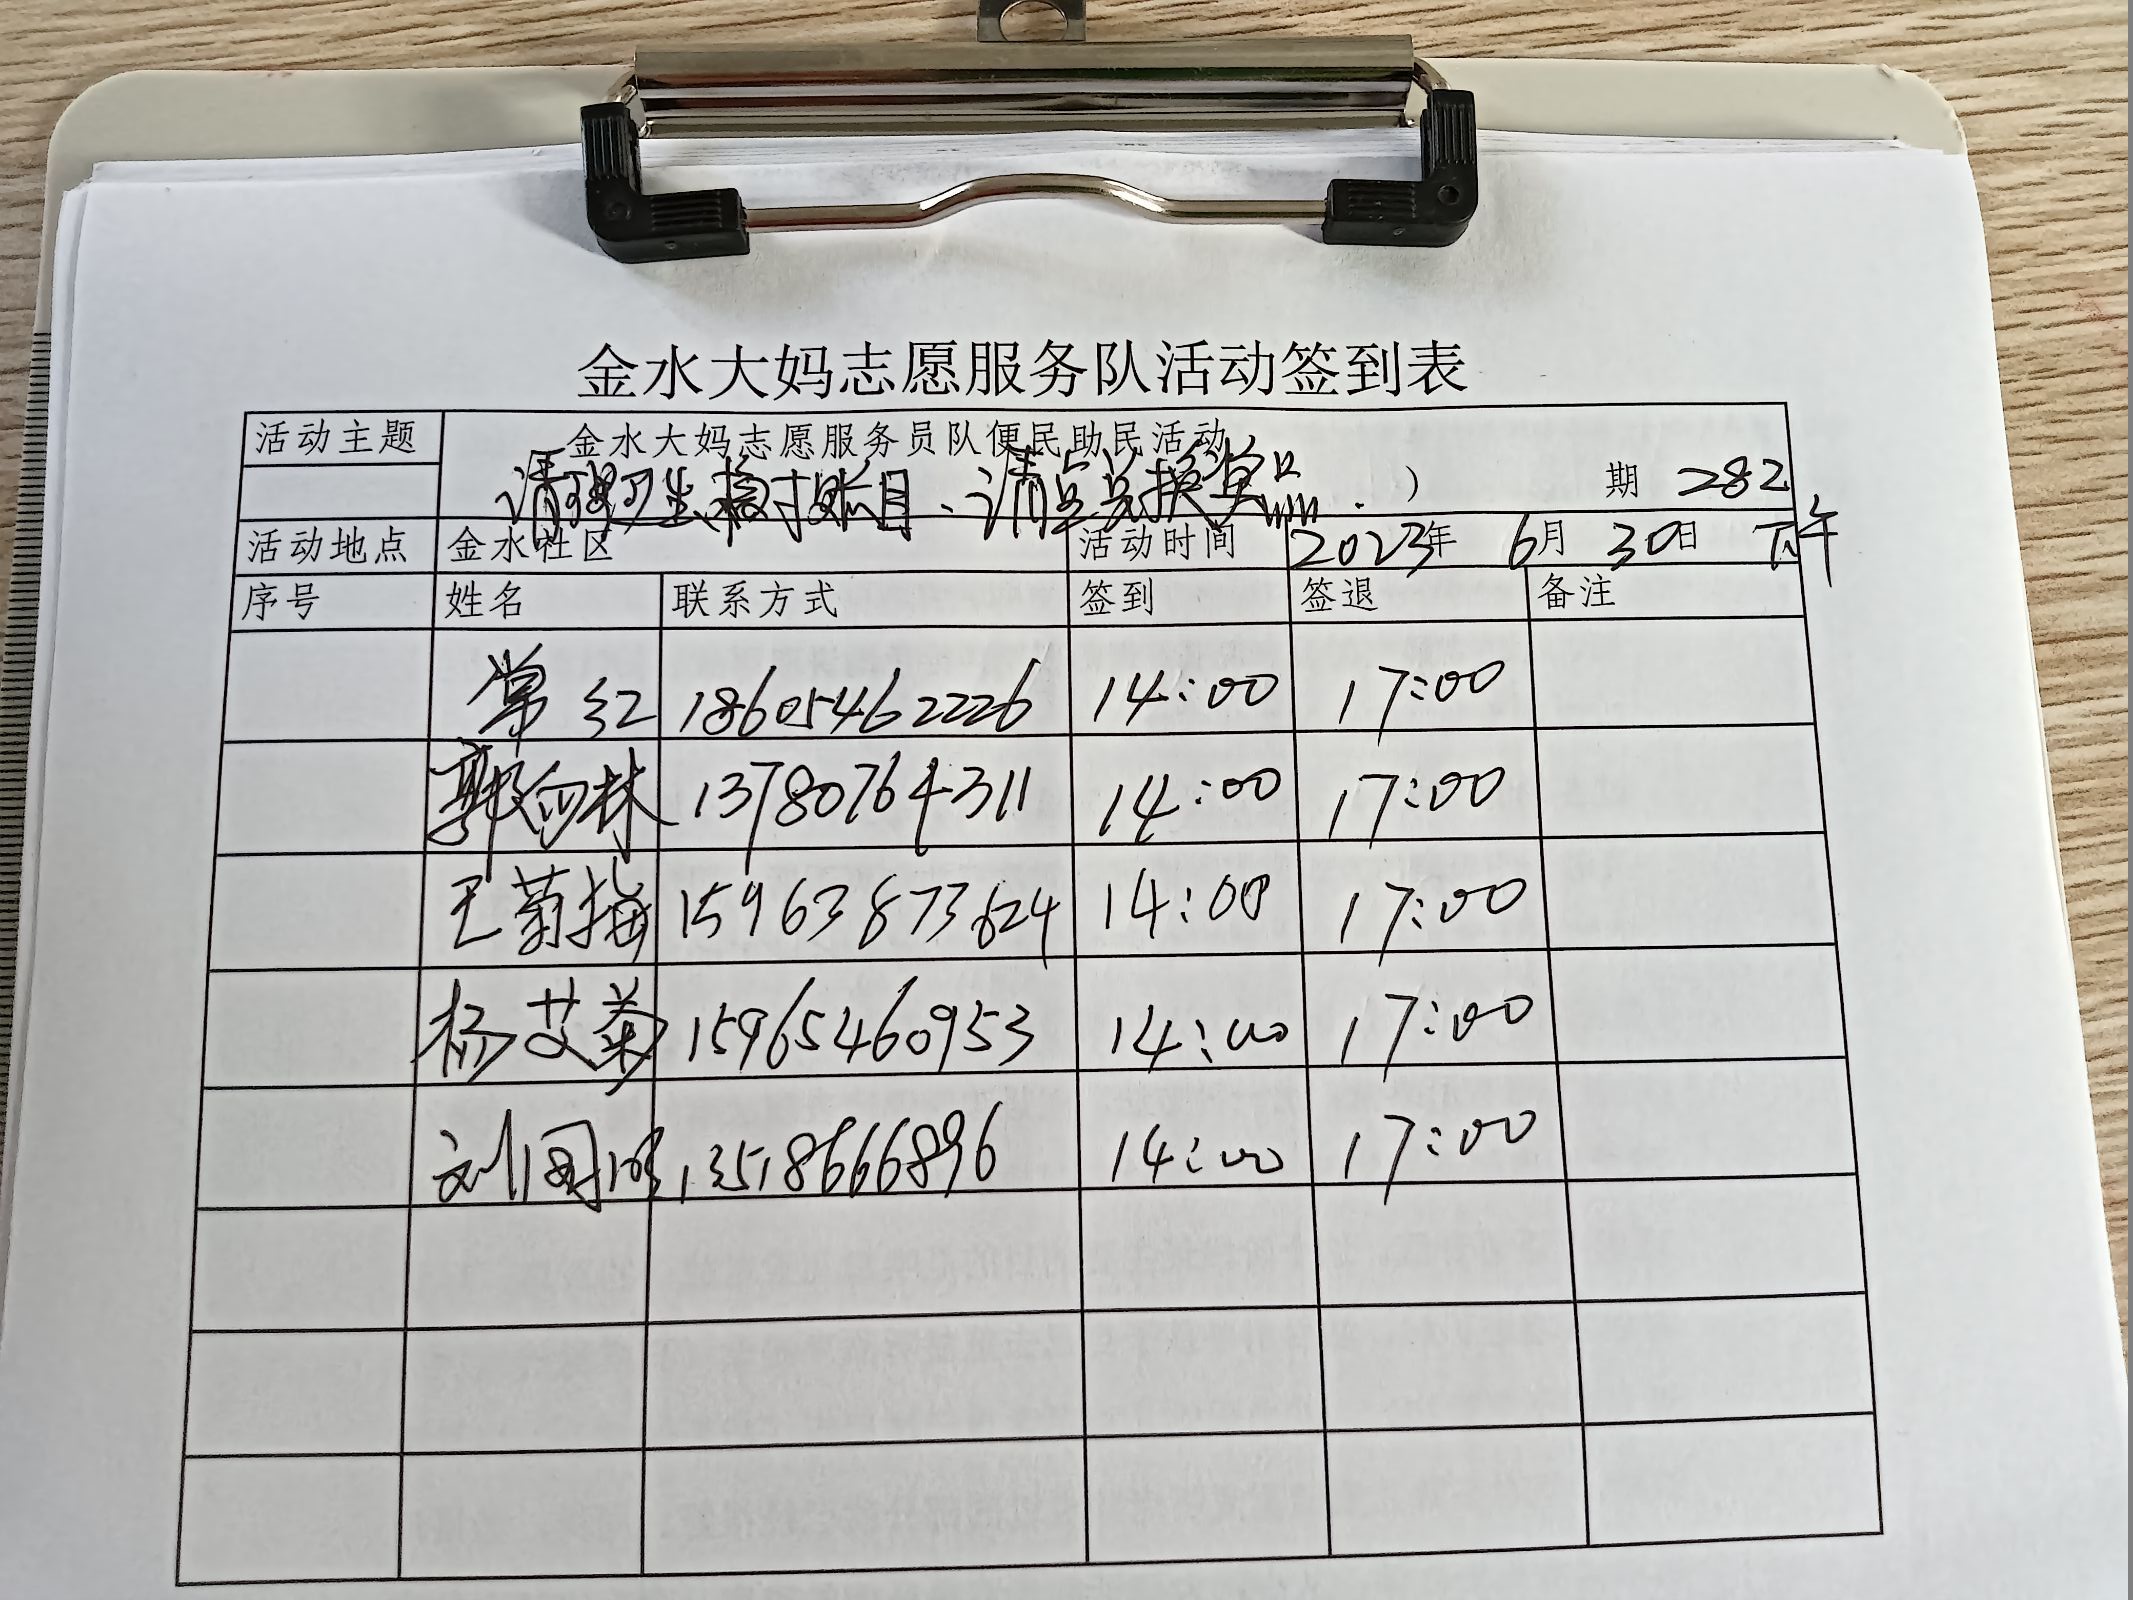 金水大妈志愿服务队活动签到表
活动主题 金水大妈志愿服务员队便民助民活动
请理卫生核对账目、请点兑换奖品. ) 期 282
活动地点 金水社区 活动时间 2023年 6月 30日 下午
序号 姓名 联系方式 签到 签退 备注
常红 18605462226 14:00 17:00
郭向林 13780764311 14:00 17:00
王菊梅 15963873624 14:00 17:00
杨艾菊 15965460953 14:00 17:00
刘国 13518666896 14:00 17:00